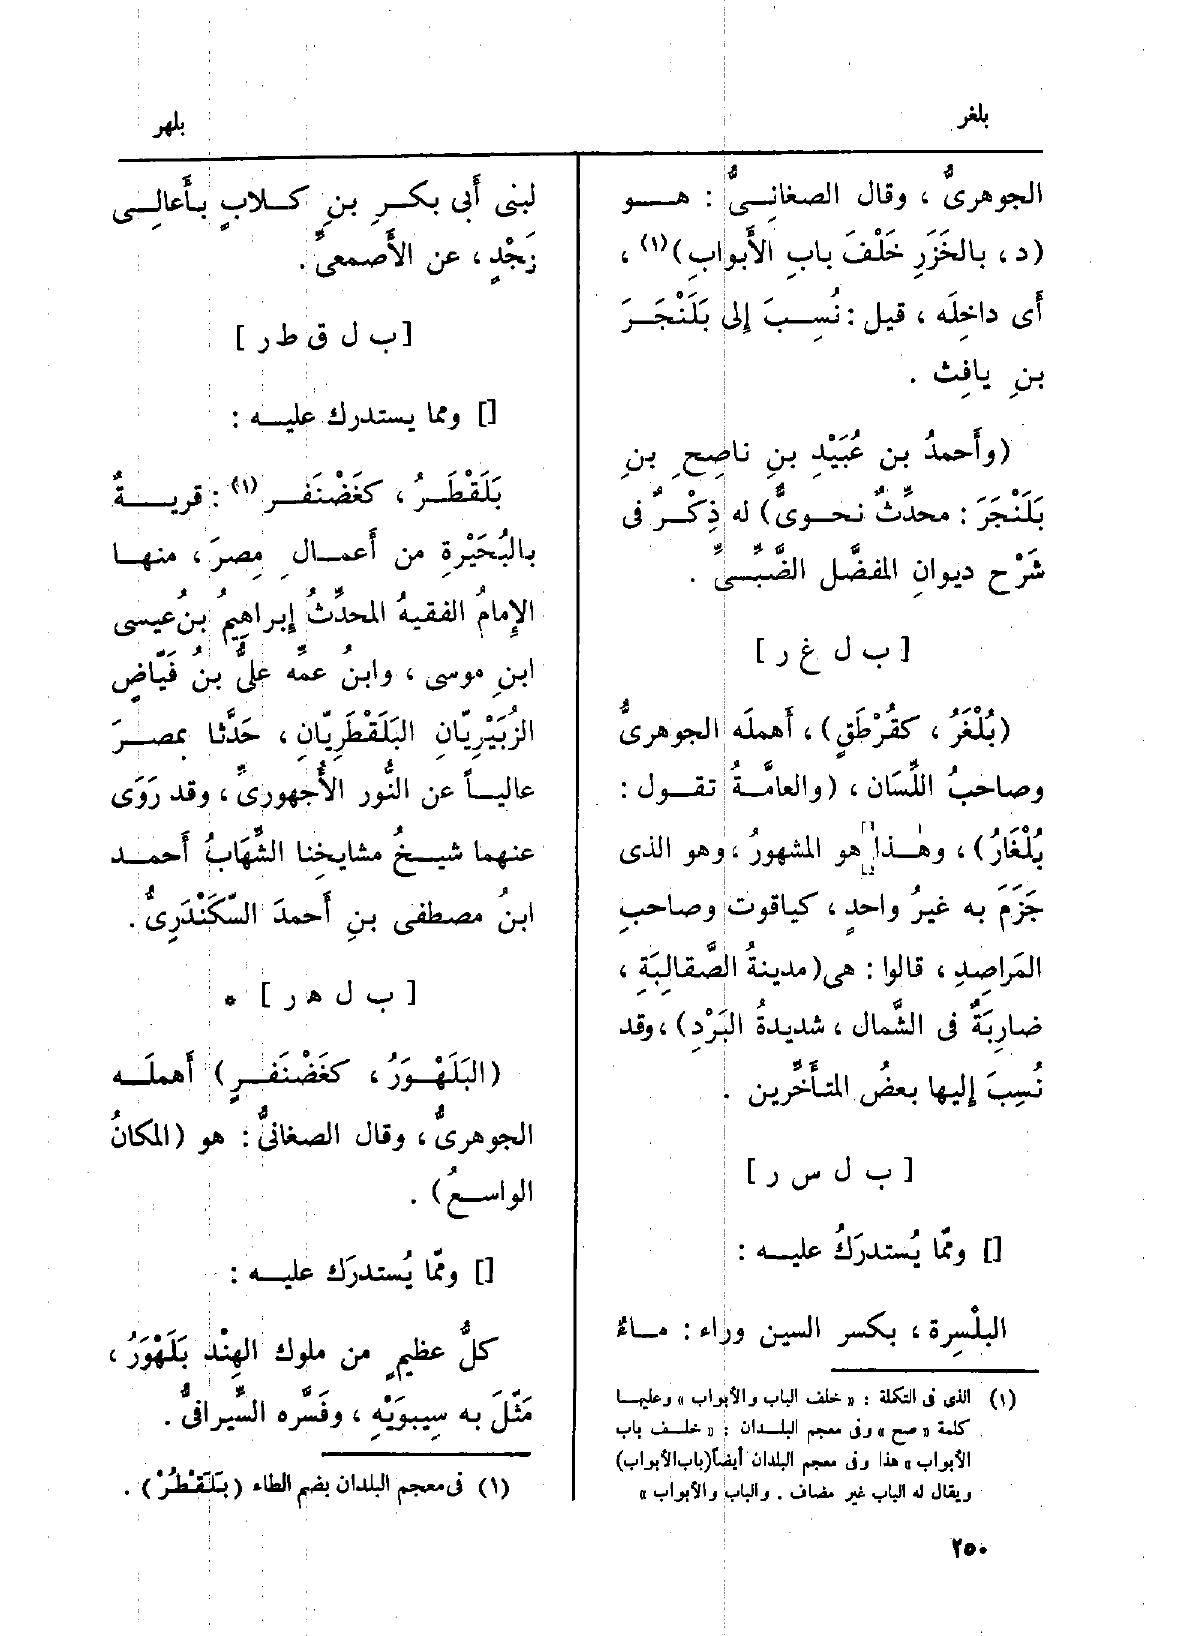 بلغر
بلهر
الجوهرىُّ ، وقال الصغانِىُّ : هو
(د ، بالخَزَرِ خَلْفَ بابِ الأَبوابِ)(١) ،
أَى داخِلِه ، قيل : نُسِبَ إِلى بَلَنْجَرَ
بنِ يافِث .
(وأَحمدُ بن عُبَيْدِ بنِ ناصِحِ بنِ
بَلَنْجَرَ : محدِّثٌ نحوىٌّ) له ذِكْرٌ فى
شَرْحِ ديوانِ المفضَّل الضَّبِّىِّ .
[ ب ل غ ر ]
(بُلْغَرُ ، كقُرْطَقٍ) ، أَهملَه الجوهرىُّ
وصاحبُ اللِّسَان ، (والعامَّةُ تقول :
بُلْغَارُ) ، وهٰذا هو المشهورُ ، وهو الذى
جَزَمَ به غيرُ واحدٍ ، كياقوت وصاحبِ
المَراصِدِ ، قالوا : هى (مدينةُ الصَّقالِبَةِ ،
ضارِبَةٌ فى الشَّمال ، شديدةُ البَرْدِ) ، وقد
نُسِبَ إِليها بعضُ المتأَخِّرين .
[ ب ل س ر ]
[] وممّا يُستدرَكُ عليه :
البلْسِرة ، بكسر السين وراء : ماءٌ
(١) الذى فى التكملة : « خلف الباب والأبواب » وعليها
كلمة « صح » وفى معجم البلدان : « خلف باب
الأبواب » هذا وفى معجم البلدان أيضاً (باب الأبواب)
ويقال له الباب غير مضاف . والباب والأبواب »
لبنى أَبى بكرِ بنِ كلابٍ بأَعالِى
نَجْدٍ ، عن الأَصمعىِّ .
[ ب ل ق ط ر ]
[] ومما يستدرك عليه :
بَلَقْطَرُ ، كغَضْنَفر(١) : قريةٌ
بالبُحَيْرةِ من أَعمالِ مِصرَ ، منها
الإِمامُ الفقيهُ المحدِّثُ إِبراهيمُ بنُ عيسى
ابنِ موسى ، وابنُ عمِّه علىُّ بنُ فَيّاضٍ
الزُّبَيْرِيّانِ البَلَقْطَرِيّانِ ، حَدَّثا بمصرَ
عالياً عن النُّور الأُجهورىِّ ، وقد رَوَى
عنهما شيخُ مشايخنا الشِّهَابُ أَحمد
ابنُ مصطفى بنِ أَحمدَ السَّكَنْدَرِىُّ .
[ ب ل ه ر ] *
(البَلَهْوَرُ ، كغَضْنَفرٍ) أَهملَه
الجوهرىُّ ، وقال الصغانىُّ : هو (المكانُ
الواسعُ) .
[] وممّا يُستدرَك عليه :
كلُّ عظيمٍ من ملوك الهِنْدِ بَلَهْوَرُ ،
مَثَّلَ به سِيبوَيْهِ ، وفَسَّره السِّيرافىُّ .
(١) فى معجم البلدان بضم الطاء (بَلَقْطُرْ) .
٢٥٠